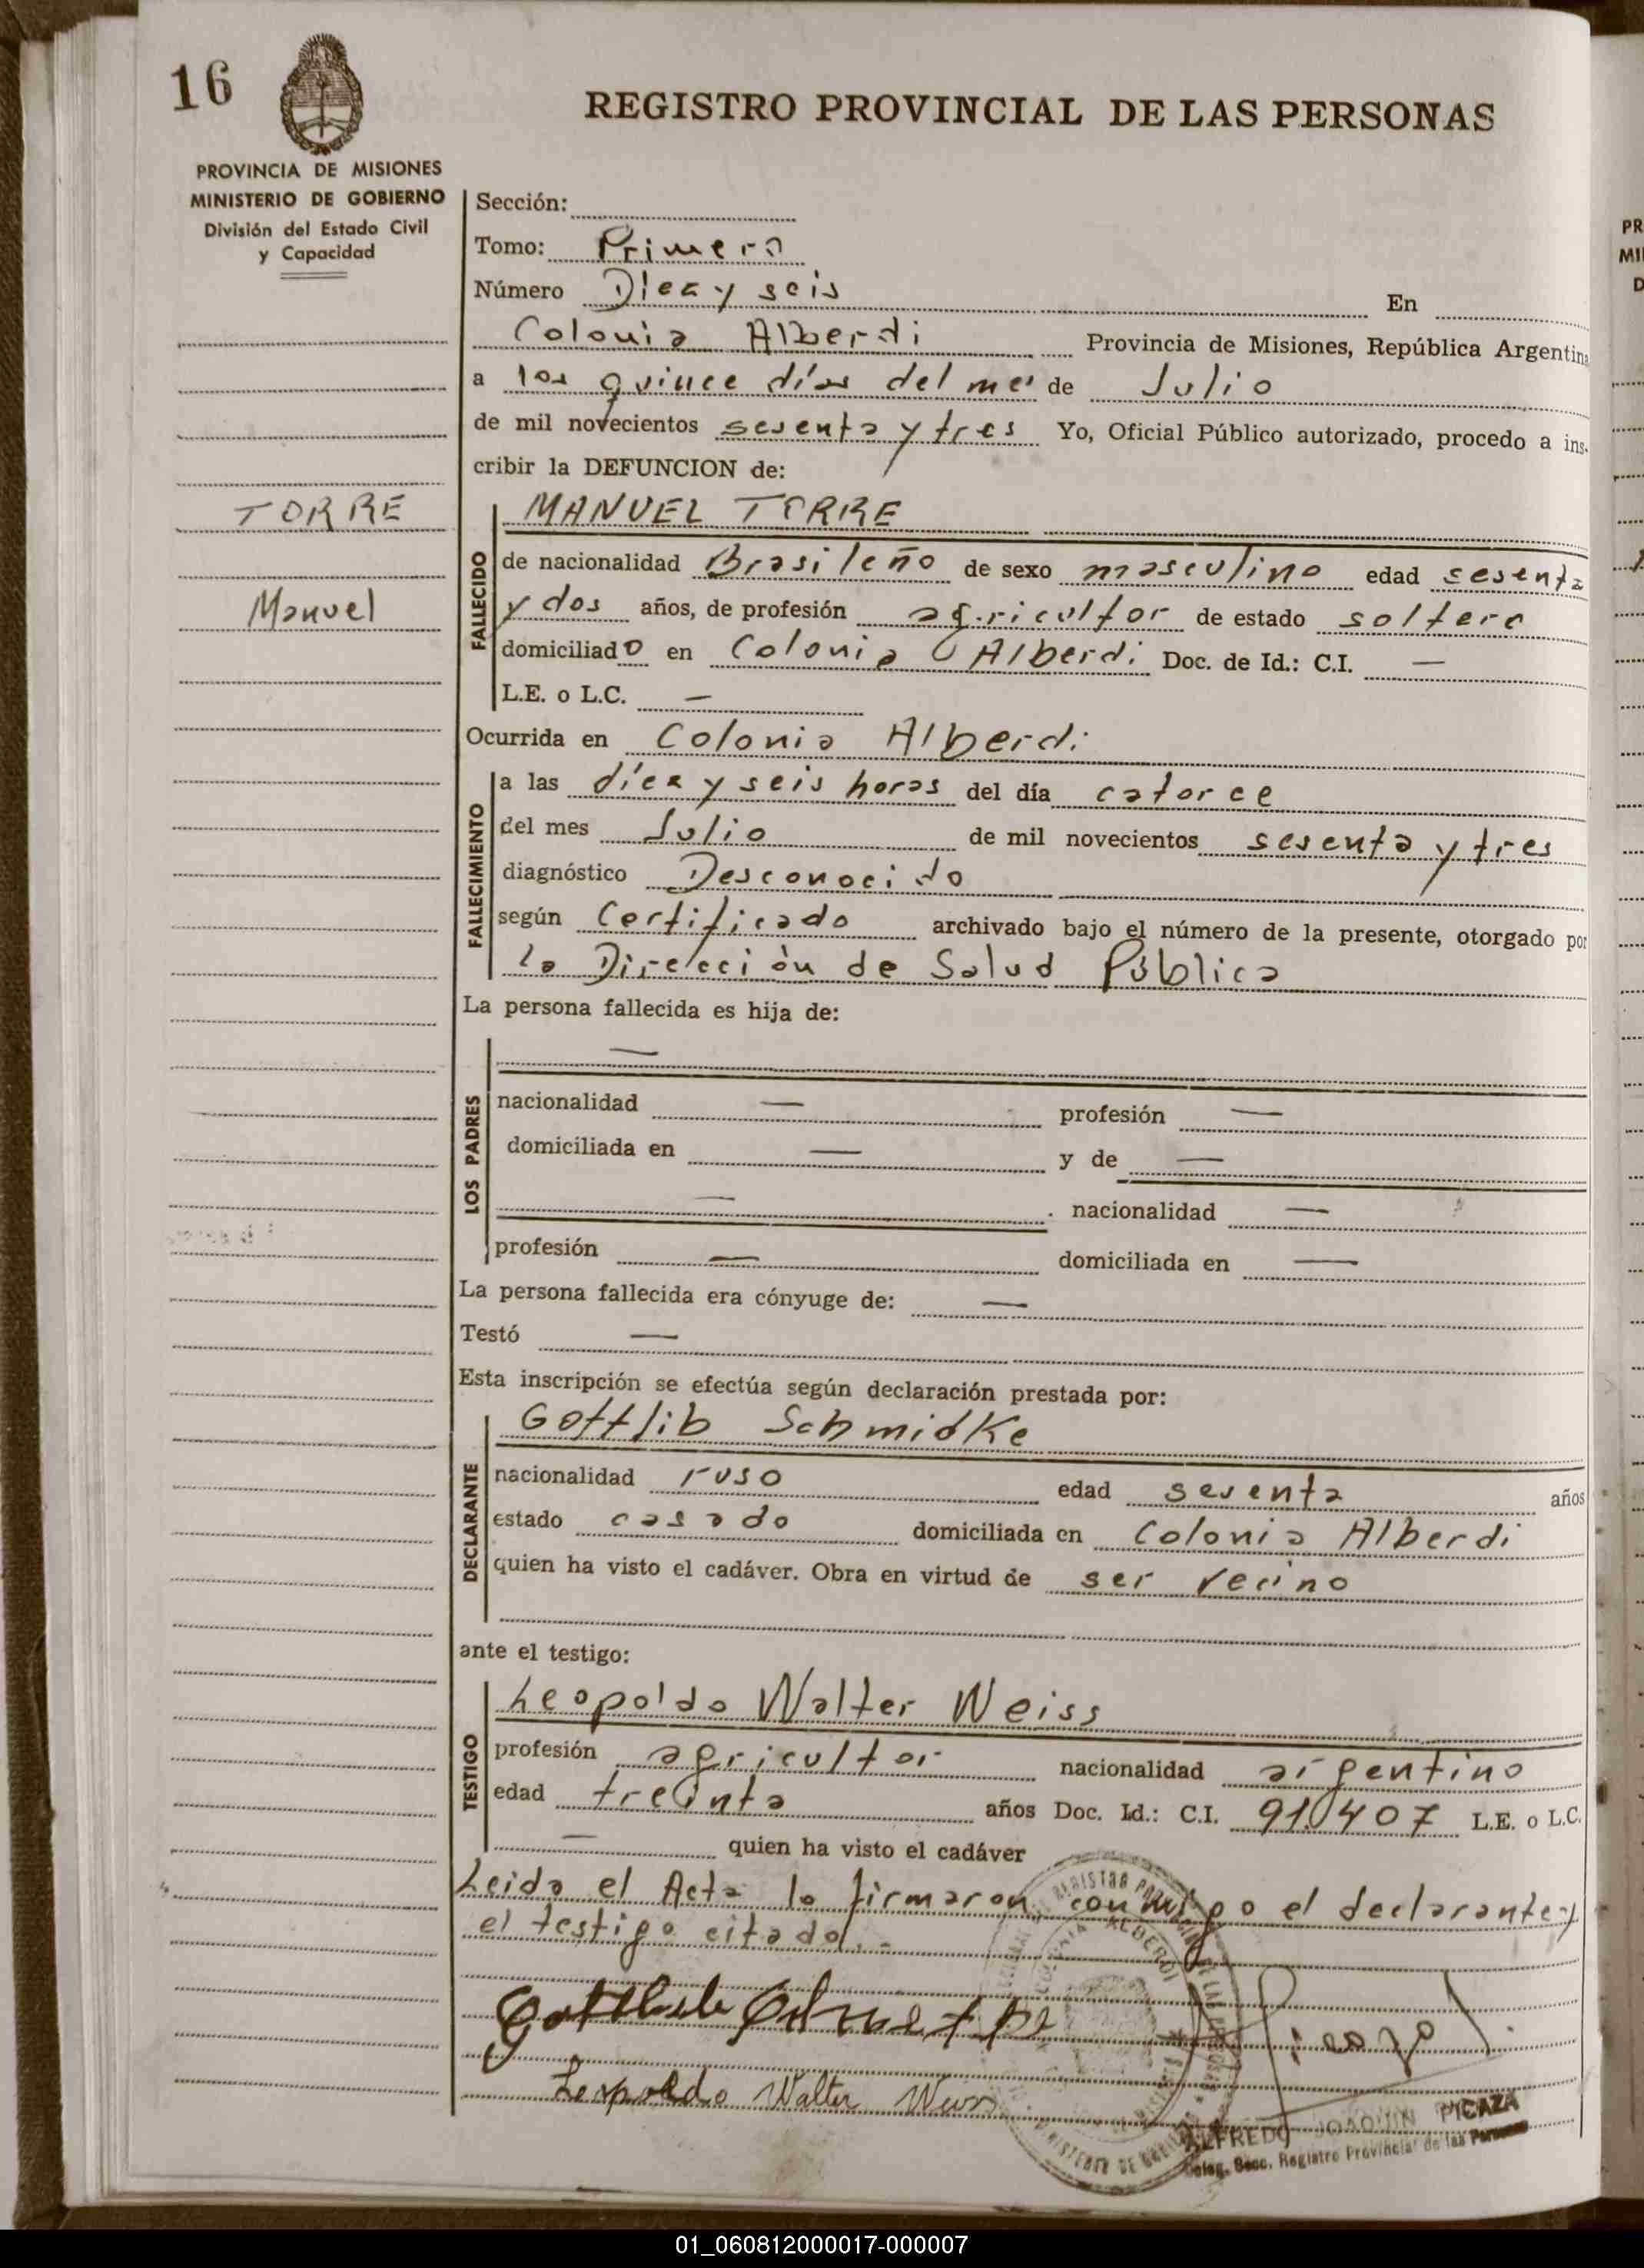 16
REGISTRO PROVINCIAL DE LAS PERSONAS
PROVINCIA DE MISIONES
MINISTERIO DE GOBIERNO
División del Estado Civil
y Capacidad
Sección:
Tomo: Primero
Número Diez y seis En
Colonia Alberdi Provincia de Misiones, República Argentina
a los quince días del mes de Julio
de mil novecientos sesenta y tres Yo, Oficial Público autorizado, procedo a ins-
cribir la DEFUNCION de:
TORRE
Manuel
FALLECIDO
MANUEL TORRE
de nacionalidad Brasileño de sexo masculino edad sesenta
y dos años, de profesión agricultor de estado soltero
domiciliado en Colonia Alberdi Doc. de Id.: C.I. —
L.E. o L.C. —
Ocurrida en Colonia Alberdi
FALLECIMIENTO
a las díez y seis horas del día catorce
del mes Julio de mil novecientos sesenta y tres
diagnóstico Desconocido
según Certificado archivado bajo el número de la presente, otorgado por
la Dirección de Salud Pública
La persona fallecida es hija de:
LOS PADRES
—
nacionalidad — profesión —
domiciliada en — y de —
— nacionalidad —
profesión — domiciliada en —
La persona fallecida era cónyuge de: —
Testó —
Esta inscripción se efectúa según declaración prestada por:
DECLARANTE
Gottlib Schmidke
nacionalidad ruso edad sesenta años
estado casado domiciliada en Colonia Alberdi
quien ha visto el cadáver. Obra en virtud de ser vecino
ante el testigo:
TESTIGO
Leopoldo Walter Weiss
profesión agricultor nacionalidad argentino
edad treinta años Doc. Id.: C.I. 91.407 L.E. o L.C.
— quien ha visto el cadáver
Leida el Acta la firmaron conmigo el declarante y
el testigo citado.-
Leopoldo Walter Weiss
ALFREDO JOAQUIN PICAZA
Deleg. Secc. Registro Provincial de las Personas
01_060812000017-000007